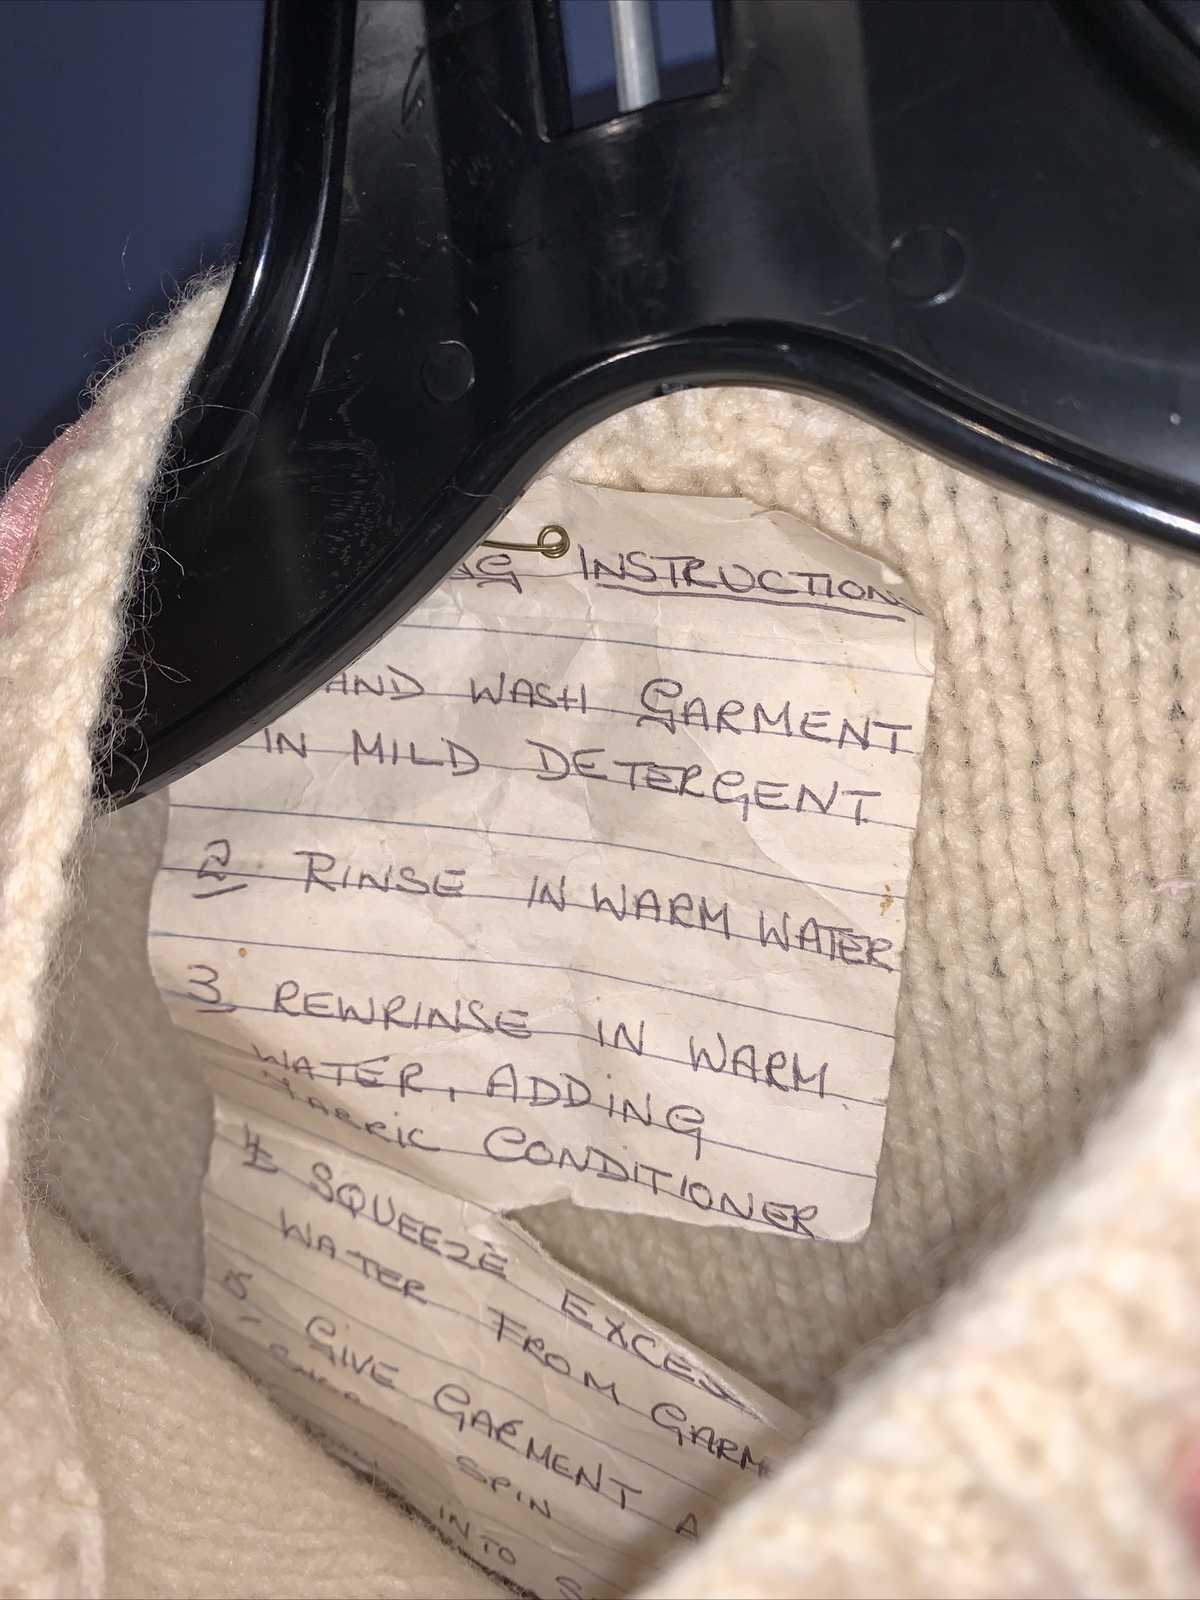 NG INSTRUCTIONS
HAND WASH GARMENT
IN MILD DETERGENT
2 RINSE IN WARM WATER
3 REWRINSE IN WARM
WATER, ADDING
FABRIC CONDITIONER
4 SQUEEZE EXCESS
WATER FROM GARM
5 GIVE GARMENT A
SPIN
INTO S